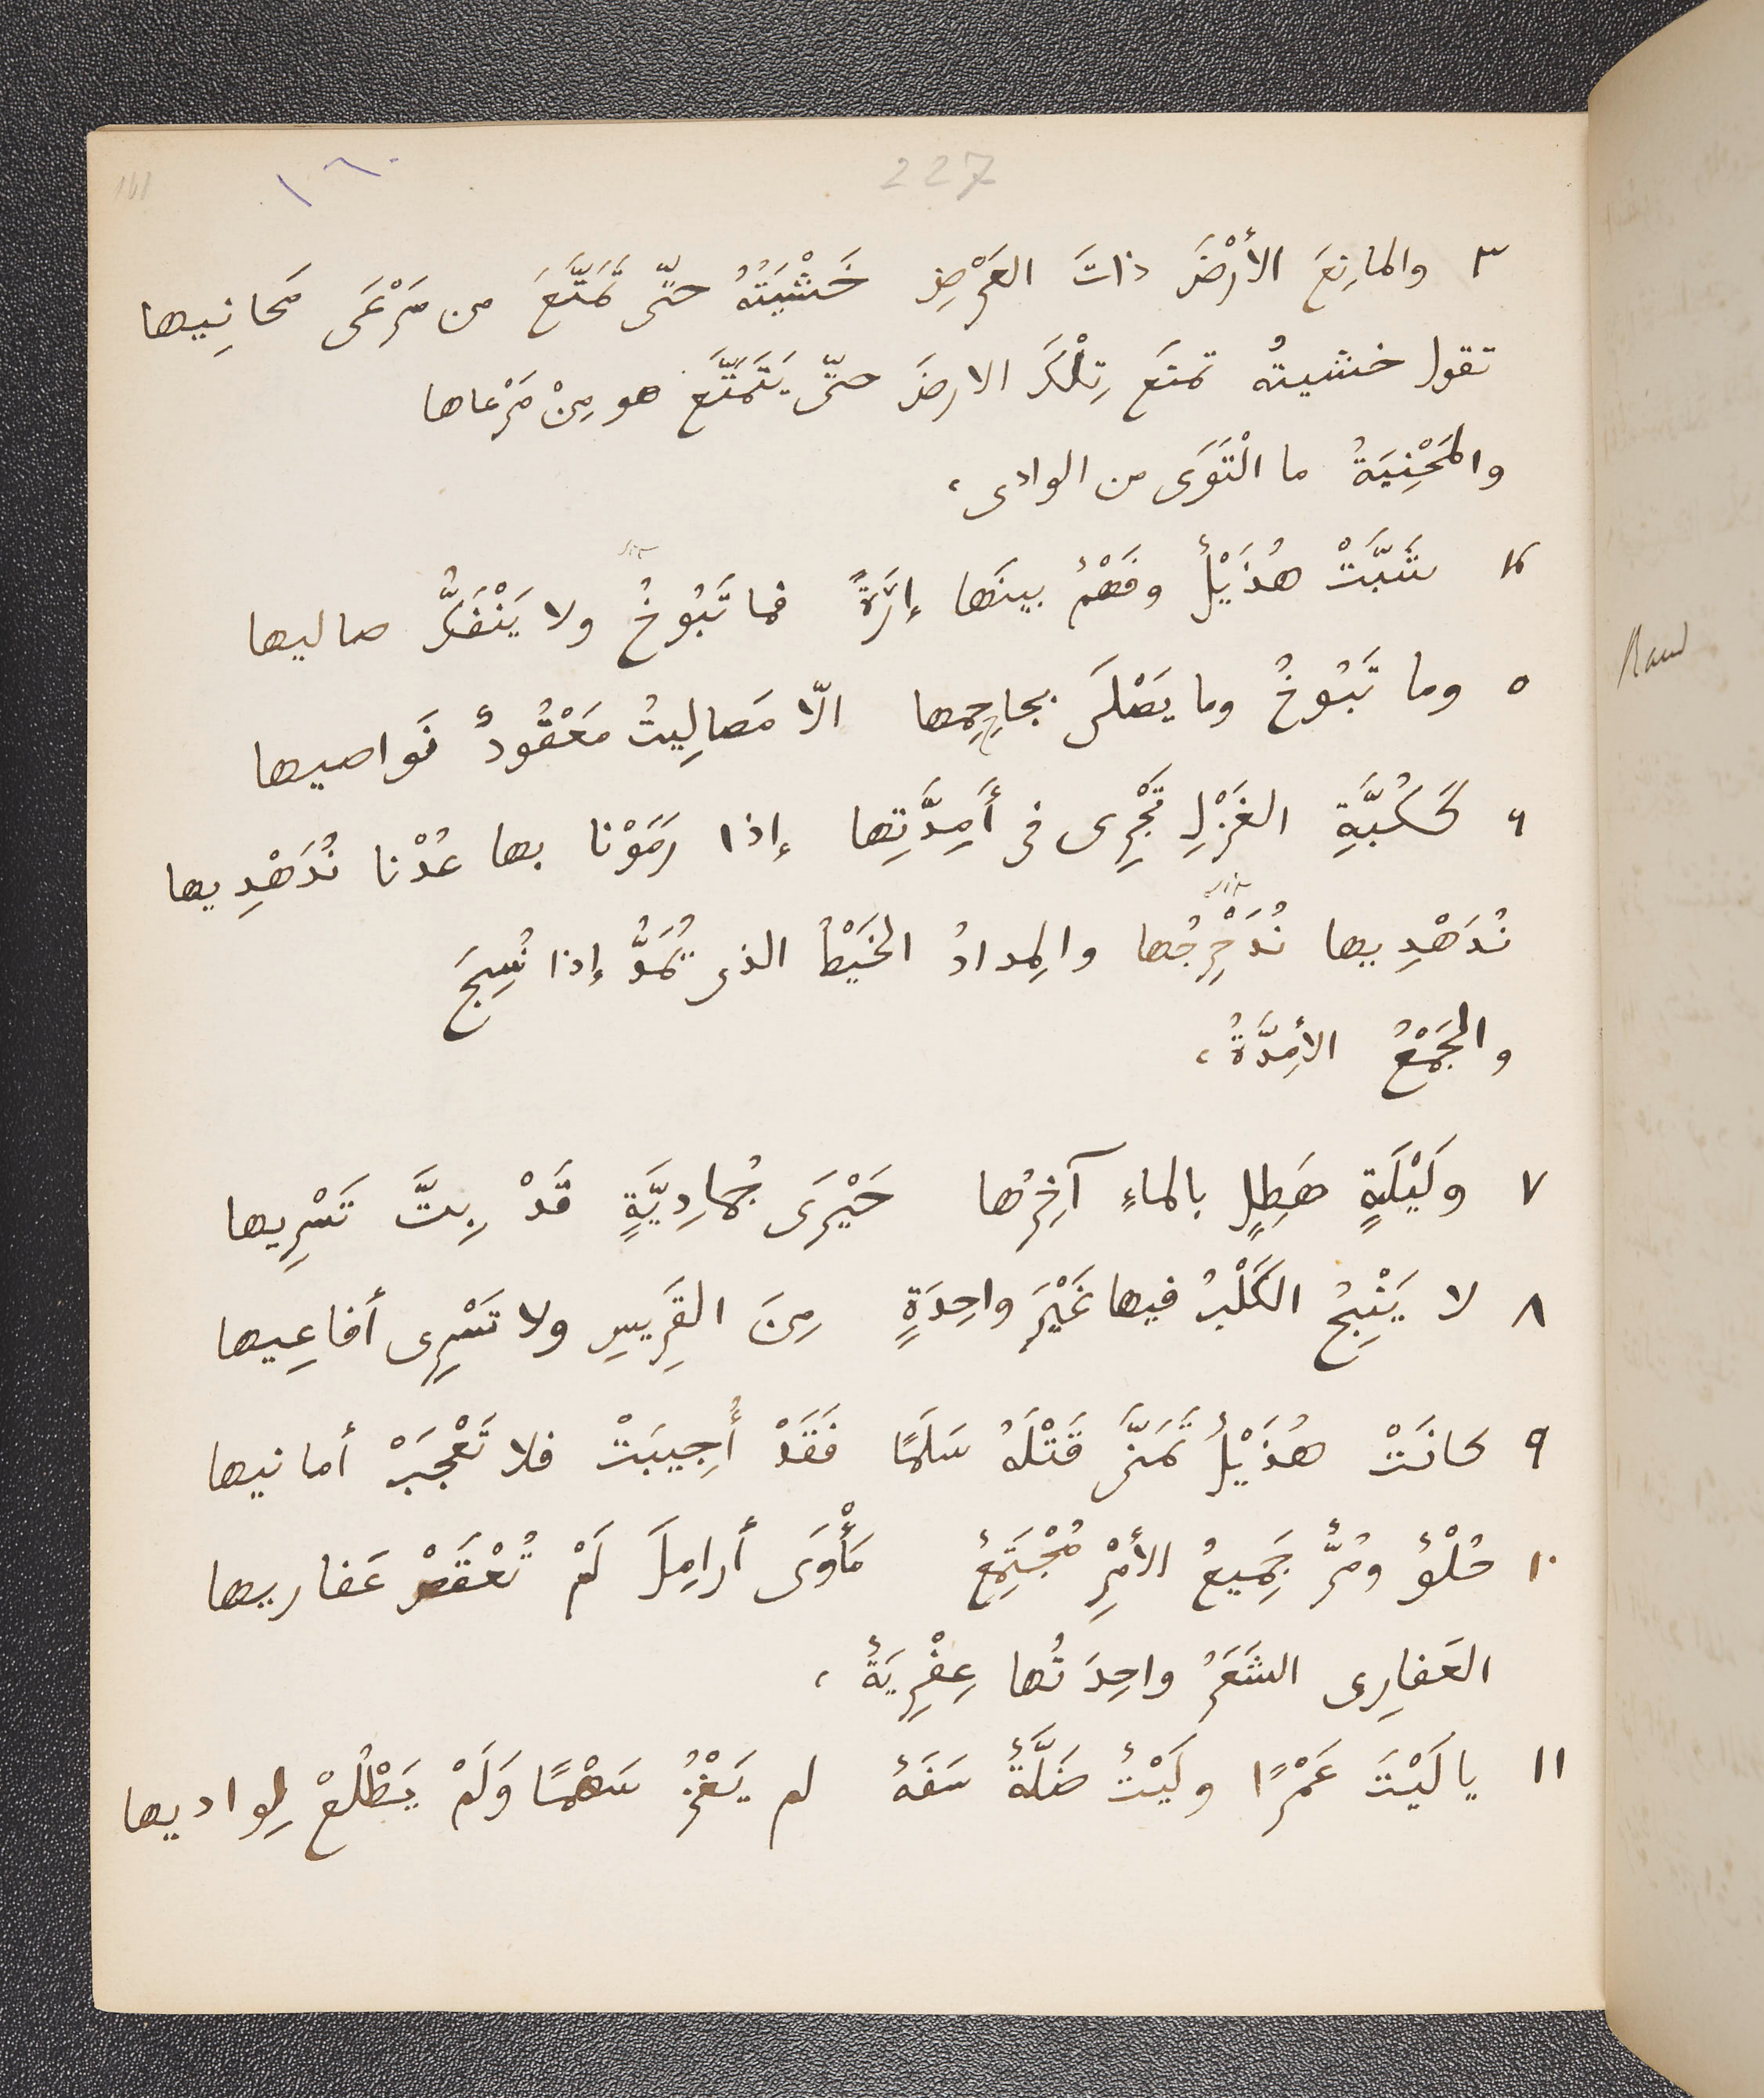 227
١٦٠
161
٣ والمانِعَ الأَرْضَ ذاتَ العَرْضِ خَشْيَتُهُ حتّى تَمَتَّعَ من مَرْعَى مَحانِيها
تقول خشيتُه تمنَع تِلْكَ الارضَ حتّى يَتَمَتَّع هو مِنْ مَرْعاها
والمَحْنِيَةُ ما الْتَوَى من الوادى،
٤ شَبَّتْ هُذَيْلٌ وفَهْمٌ بينَها إِرَةً فما تَبُوخُ ولا يَنْفَكُّ صاليها
٥ وما تَبُوخُ وما يَصْلَى بجاحِمِها الّا مَصالِيتُ مَعْقُودٌ نَواصيها
٦ كَكُبَّةِ الغَزْلِ تَجْرِى فى أَمِدَّتِها إذا رَمَوْنا بها عُدْنا نُدَهْدِيها
نُدَهْدِيها نُدَحْرِجُها والِمدادُ الخَيْطُ الذى يُمَدُّ إذا نُسِجَ
والجَمْعُ الأَمِدَّةُ،
٧ ولَيْلَةٍ هَطِلٍ بالماءِ آخِرُها حَيْرَى جُمادِيَّةٍ قَدْ بِتَّ تَسْرِيها
٨ لا يَنْبِحُ الكَلْبُ فيها غَيْرَ واحِدَةٍ مِنَ القَرِيسِ ولا تَسْرِى أفاعِيها
٩ كانَتْ هُذَيْلُ تَمَنَّى قَتْلَهُ سَلَمًا فَقَدْ أُجِيبَتْ فلا تَعْجَبْ أمانيها
١٠ حُلْوٌ ومُرٌّ جَمِيعُ الأَمْرِ مُجْتَمِعٌ مَأْوَى أَرامِلَ لَمْ تُعْقَصْ عَفاريها
العَفارِى الشَعَرُ واحِدَتُها عِفْرِيَةٌ،
١١ يا لَيْتَ عَمْرًا ولَيْتٌ ضَلَّةٌ سَفَهٌ لم يَغْزُ سَهْمًا وَلَمْ يَطْلُعْ لِواديها